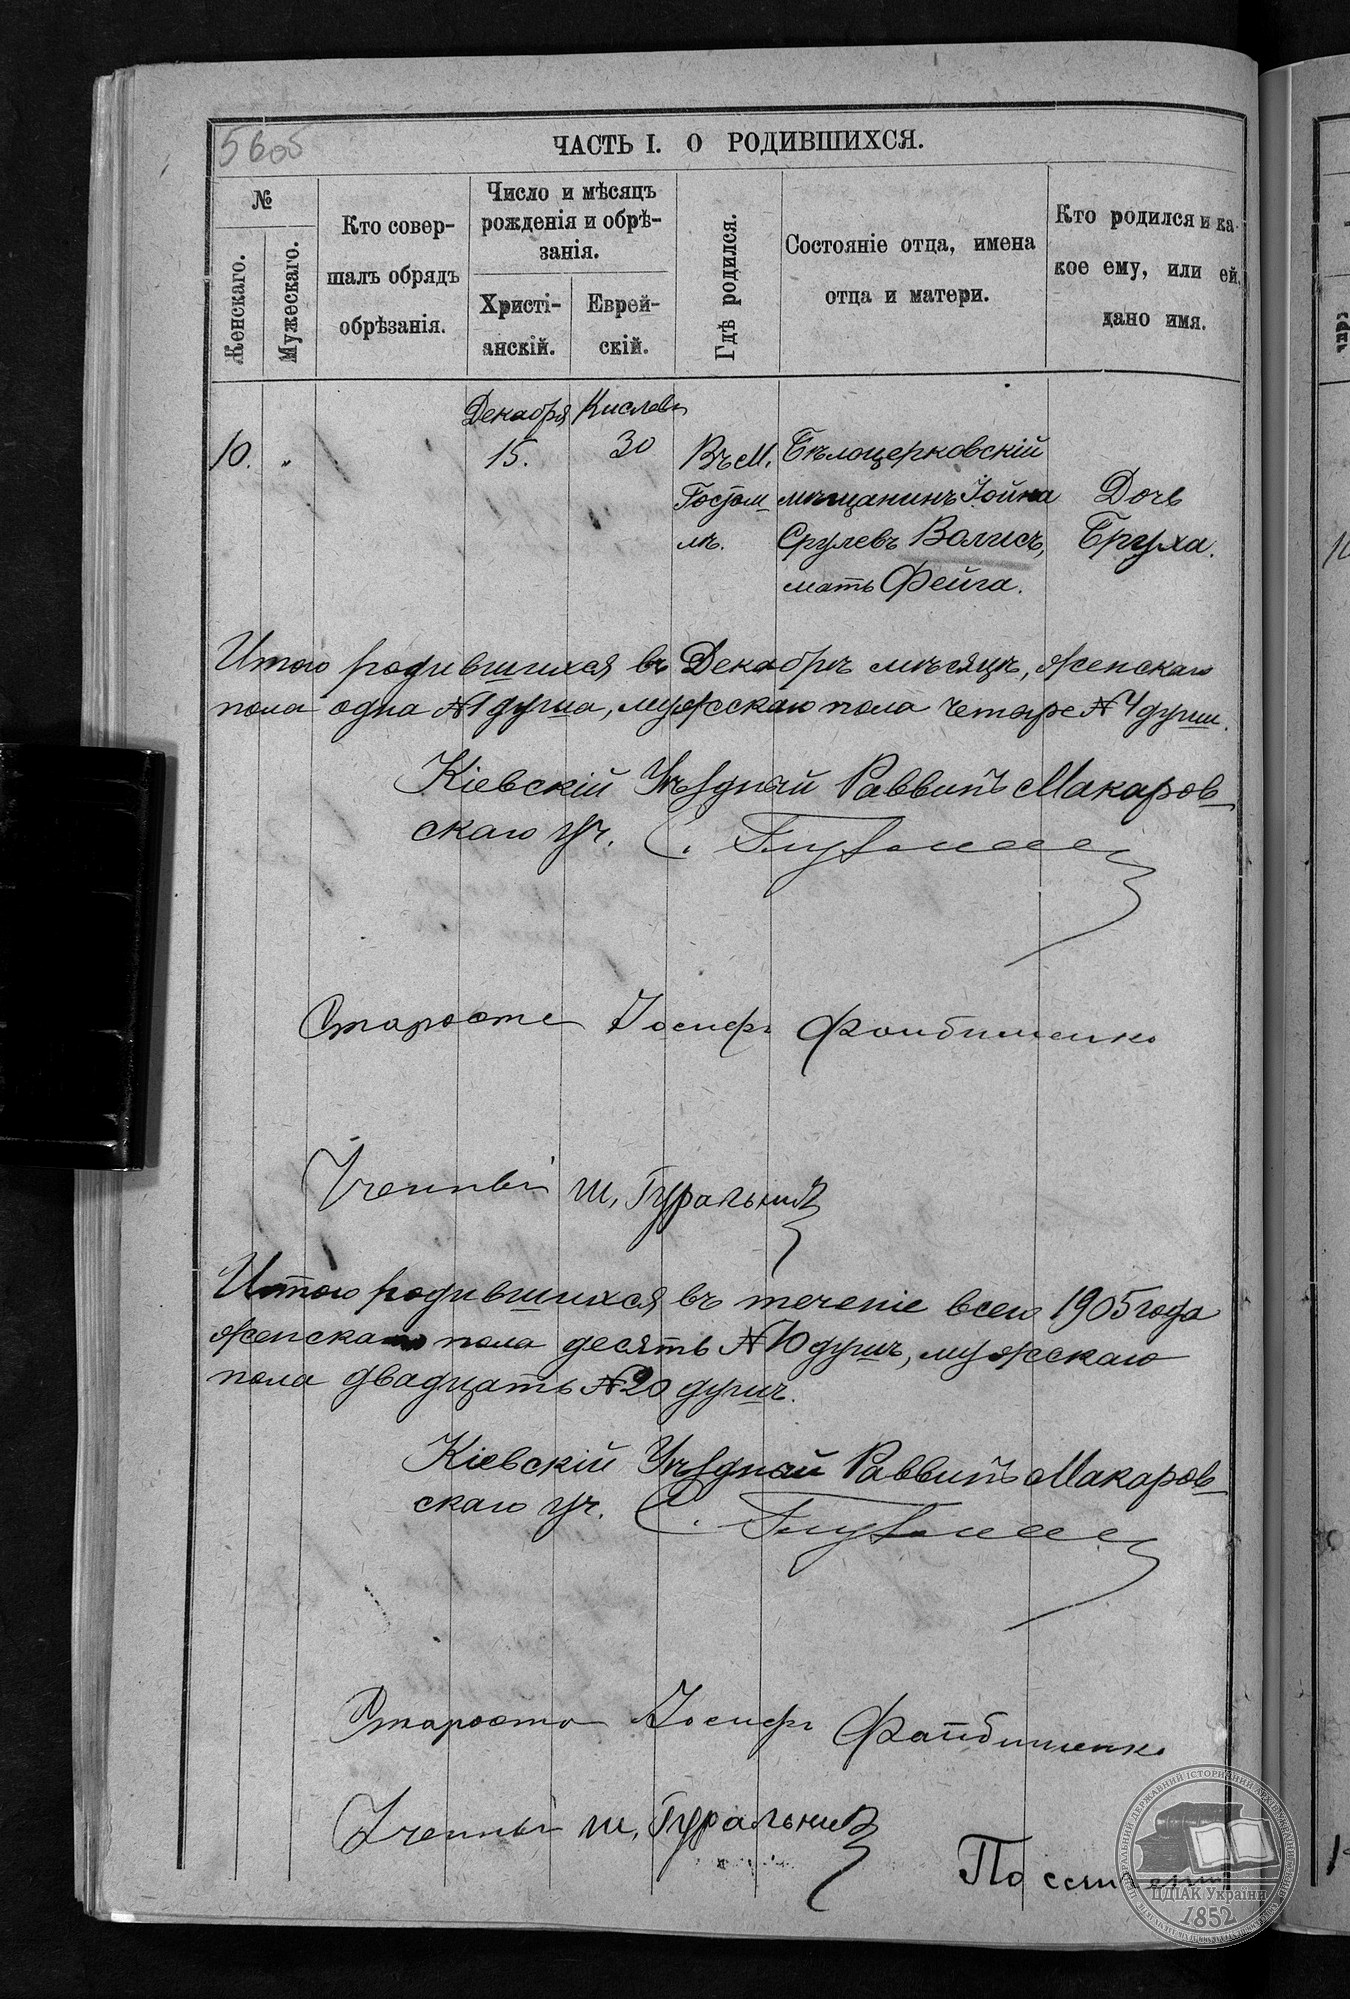 56об
ЧАСТЬ I. О РОДИВШИХСЯ.
№
Женскаго.
Мужескаго.
Кто совер-
шалъ обрядъ
обрѣзанія.
Число и мѣсяцъ
рожденія и обрѣ-
занія.
Христі-
анскій.
Еврей-
скій.
Гдѣ родился.
Состояніе отца, имена
отца и матери.
Кто родился и ка-
кое ему, или ей,
дано имя.
Декабря Кислевъ
10. „ 15. 30 Въ М. Бѣлоцерковскій
Гостом- мѣщанинъ Іойна Дочь
лѣ. Срулевъ Волисъ, Бруха.
мать Фейга.
Итого родившихся въ Декабрѣ мѣсяцѣ, женскаго
пола одна №1 душа, мужскаго пола четыре №4 души.
Кіевскій Уѣздный Раввинъ Макаров-
скаго уч. С.
Староста Іосифъ Файбишенко
Ученый Ш. Гуральник
Итого родившихся въ теченіе всего 1905 года
женскаго пола десять №10 душъ, мужскаго
пола двадцать №20 душъ.
Кіевскій Уѣздный Раввинъ Макаров-
скаго уч. С.
Староста Іосифъ Файбишенко
Ученый Ш. Гуральник
По
ЦДІАК України
1852